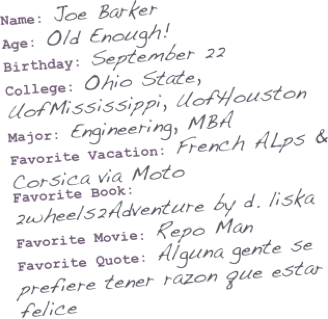 Name: Joe Barker
Age: Old Enough!
Birthday: September 22
College: Ohio State,
UofMississippi, UofHouston
Major: Engineering, MBA
Favorite Vacation: French ALps &
Corsica via Moto
Favorite Book:
2wheels2Adventure by d. liska
Favorite Movie: Repo Man
Favorite Quote: Alguna gente se
prefiere tener razon que estar
felice